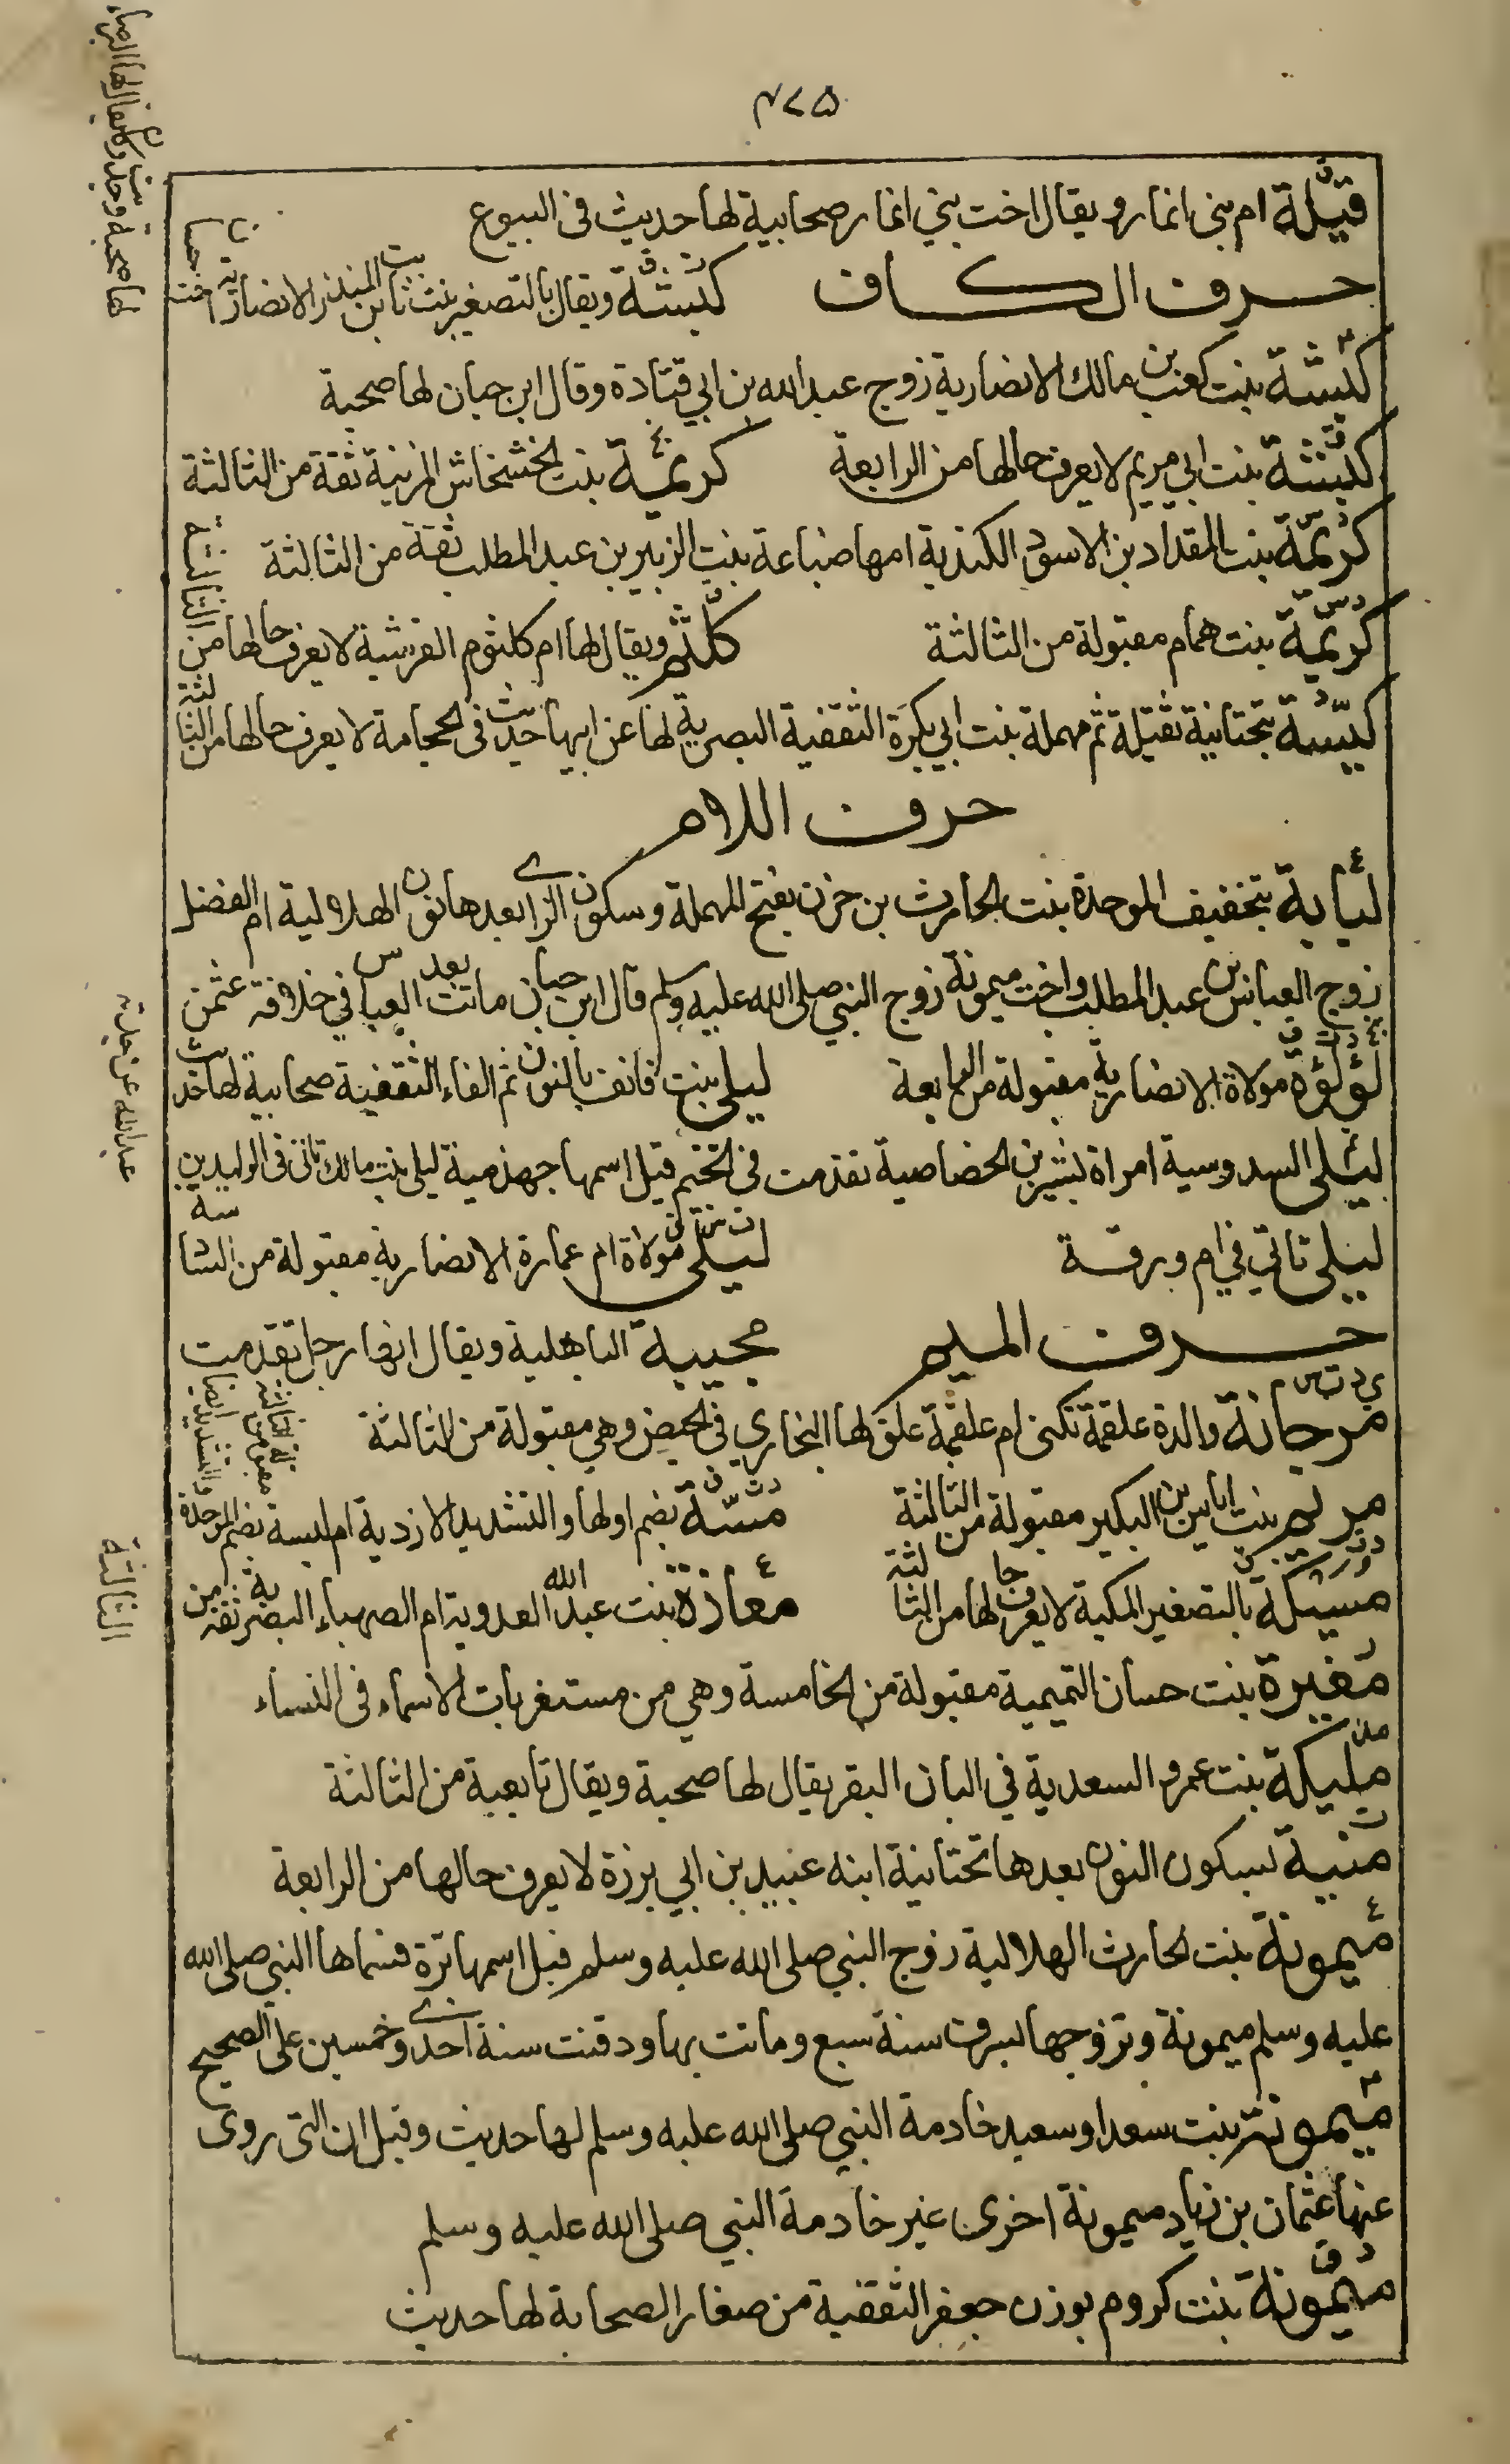 ٤٧٥
قيلة ام بني انمار و يقال اخت بني انمار صحابية لها حديث في البيوع
حرف الكاف كبشة ويقال بالتصغير بنت ثابت بن المنذر الانصارية اخت حسان
لها صحبة وحديث وكان يقال لها البرصاء
كبشة بنت كعب بن مالك الانصارية زوج عبد الله بن ابي قتادة وقال ابن حبان لها صحبة
كبشة بنت ابي مريم لا يعرف حالها من الرابعة كريمة بنت الخشخاش المزنية ثقة من الثالثة
كريمة بنت المقداد بن الاسود الكندية امها ضباعة بنت الزبير بن عبد المطلب ثقة من الثالثة
كريمة بنت همام مقبولة من الثالثة كلثم ويقال لها ام كلثوم القرشية لا يعرف حالها من الثالثة
كيسة بتحتانية ثقيلة ثم مهملة بنت ابي بكرة الثقفية البصرية لها عن ابيها حديث في الحجامة لا يعرف حالها من الثالثة
حرف اللام
لبابة بتخفيف الموحدة بنت الحارث بن حزن بفتح المهملة وسكون الزاي بعدها نون الهلالية ام الفضل
زوج العباس بن عبد المطلب واخت ميمونة زوج النبي صلى الله عليه وسلم قال ابن حبان ماتت بعد العباس في خلافة عثمن
لؤلؤة مولاة الانصارية مقبولة من الرابعة ليلى بنت قانف بالنون ثم الفاء الثقفية صحابية لها حديث
ليلى السدوسية امراة بشير بن الخصاصية تقدمت في الجيم قيل اسمها جهذمية ليلى بنت مالك تاتي في الوليد بن
عبد الله عن جدته
ليلى تاتي في ام ورقة ليلى مولاة ام عمارة الانصارية مقبولة من السادسة
حرف الميم مجيبة الباهلية ويقال انها رجل تقدمت
مرجانة والدة علقمة تكنى ام علقمة علق لها البخاري في الحيض وهي مقبولة من الثالثة
مريم بنت اياس بن البكير مقبولة من الثالثة مسة بضم اولها والتشديد الازدية ام بسة بضم الموحدة
والتشديد ايضا مقبولة من الثالثة
مسيكة بالتصغير المكية لا يعرف حالها من الثالثة معاذة بنت عبد الله العدوية ام الصهباء البصرية ثقة من
الثالثة
مغيرة بنت حسان التميمية مقبولة من الخامسة وهي من مستغربات الاسماء في النساء
مليكة بنت عمرو السعدية في البان البقر يقال لها صحبة ويقال تابعية من الثالثة
منية بسكون النون بعدها تحتانية ابنة عبيد بن ابي برزة لا يعرف حالها من الرابعة
ميمونة بنت الحارث الهلالية زوج النبي صلى الله عليه وسلم قيل اسمها برة فسماها النبي صلى الله
عليه وسلم ميمونة وتزوجها بسرف سنة سبع وماتت بها ودفنت سنة احدى وخمسين على الصحيح
ميمونة بنت سعد او سعيد خادمة النبي صلى الله عليه وسلم لها حديث وقيل ان التي روى
عنها عثمان بن زياد ميمونة اخرى غير خادمة النبي صلى الله عليه وسلم
ميمونة بنت كردم بوزن جعفر الثقفية من صغار الصحابة لها حديث